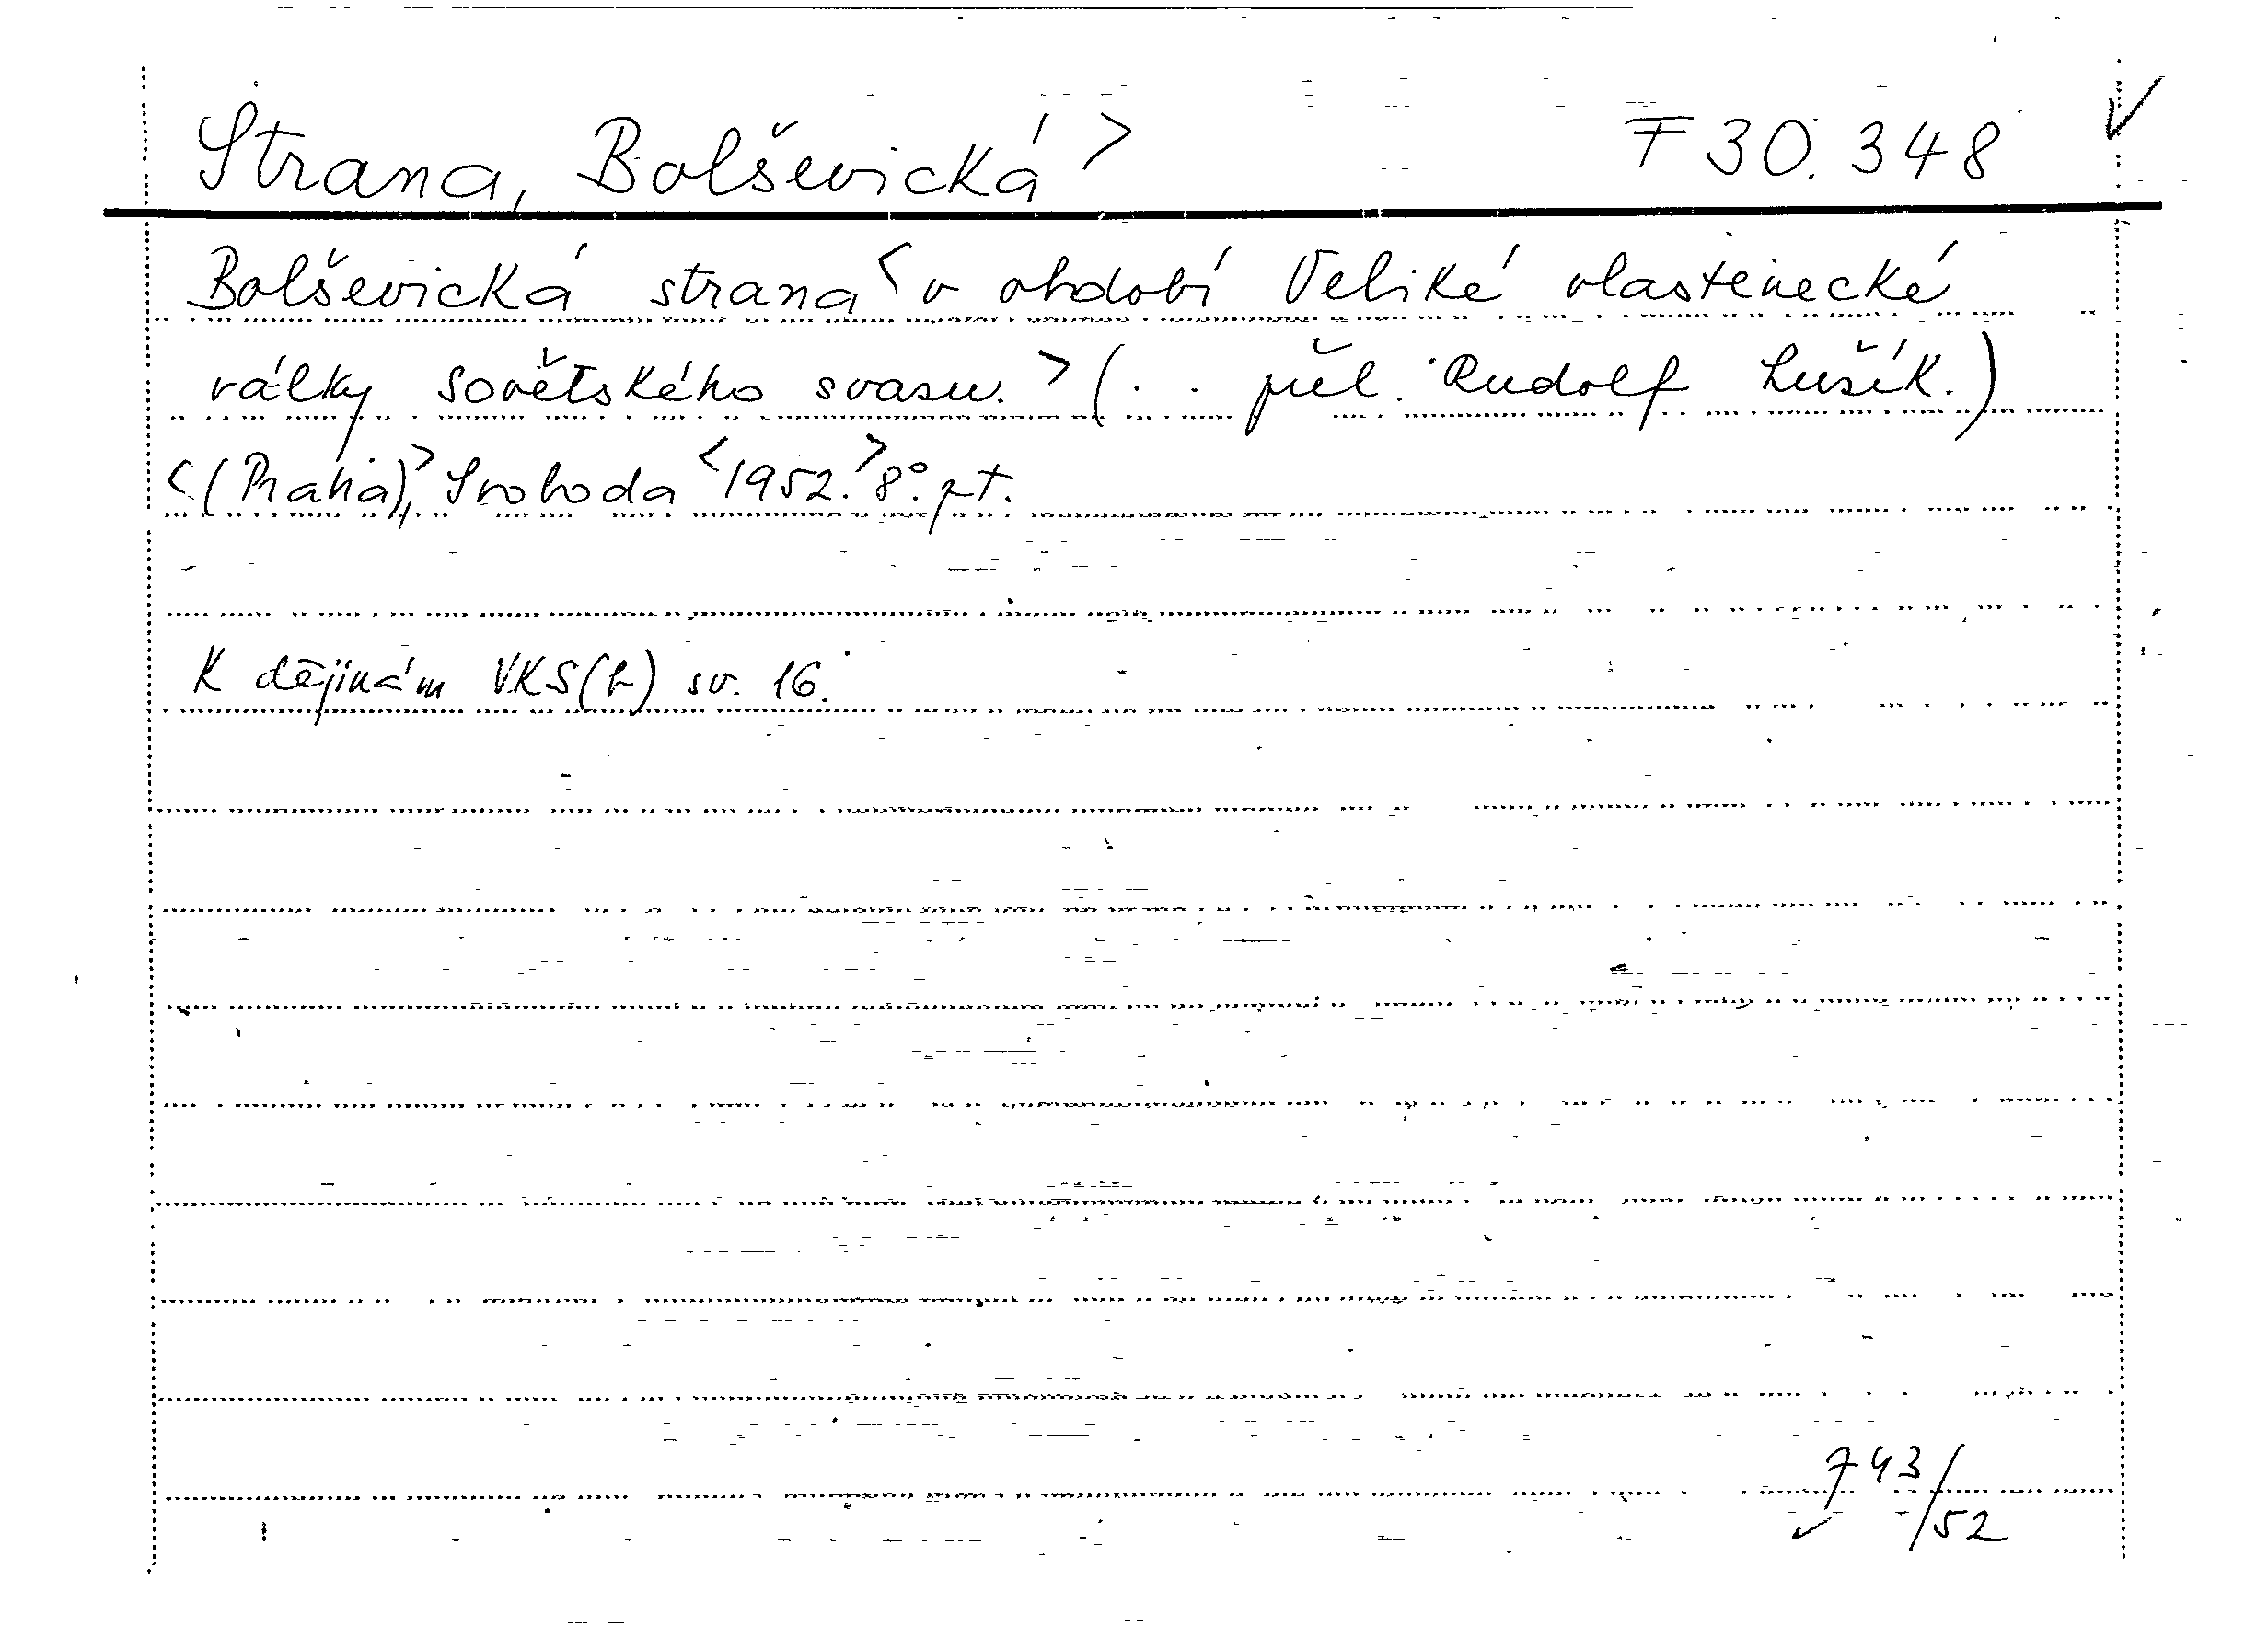 Strana, Bolševická > F 30.348 ✓
Bolševická strana < v období Veliké vlastenecké
války sovětského svasu. > ( . . přel. Rudolf Lušík.)
<(Praha), > Svoboda <1952. > 8°. pt.
K dějinám VKS(b) sv. 16.
743/52